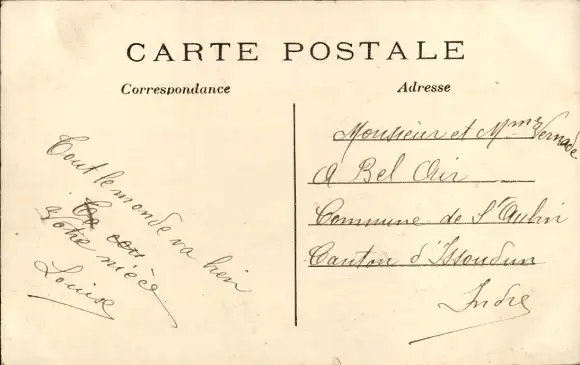 CARTE POSTALE
Correspondance
Adresse
Tout le monde va bien
Votre nièce
Louise
Monsieur et Mme Vernade
A Bel Air
Commune de St Aubin
Canton d'Issoudun
Indre